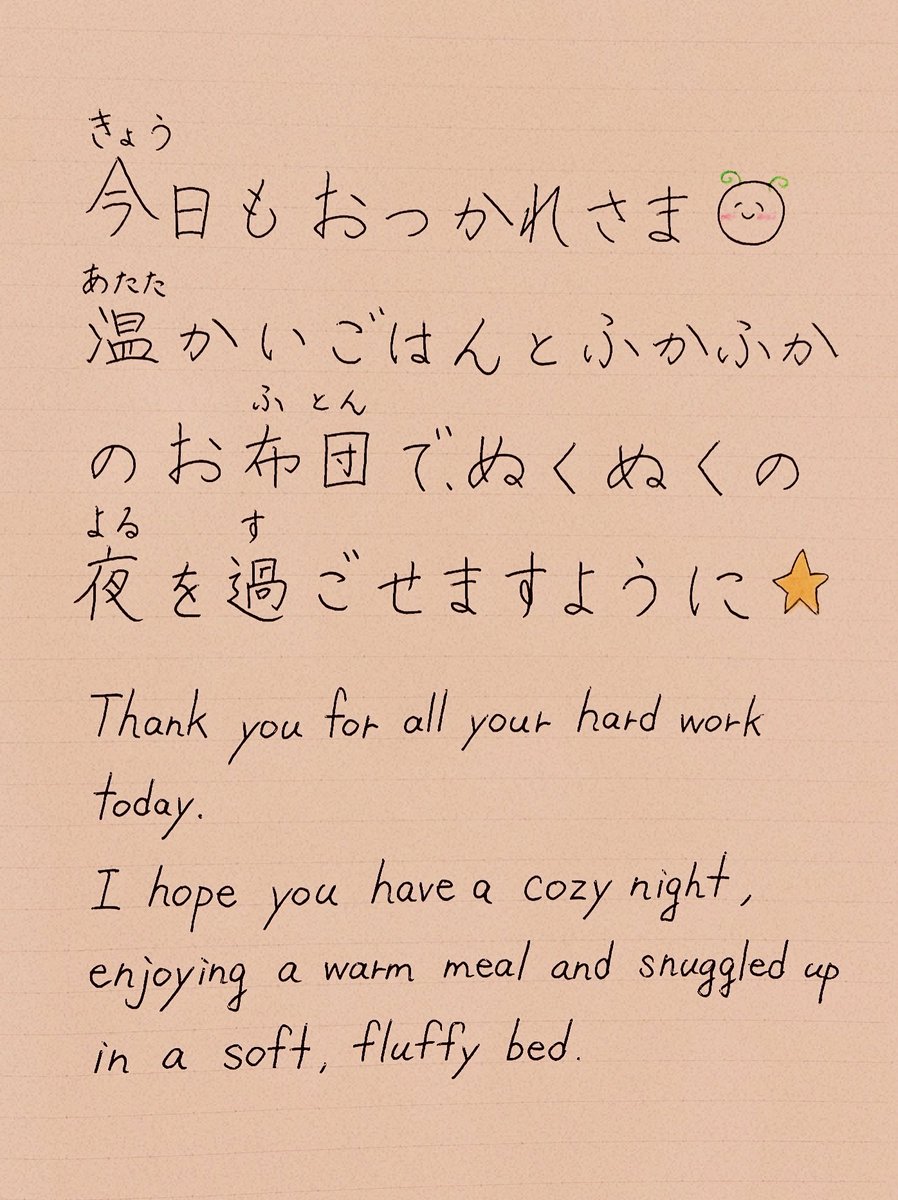 きょう
今日もおつかれさま
あたた
温かいごはんとふかふか
ふとん
のお布団で、ぬくぬくの
よる す
夜を過ごせますように
Thank you for all your hard work
today.
I hope you have a cozy night,
enjoying a warm meal and snuggled up
in a soft, fluffy bed.